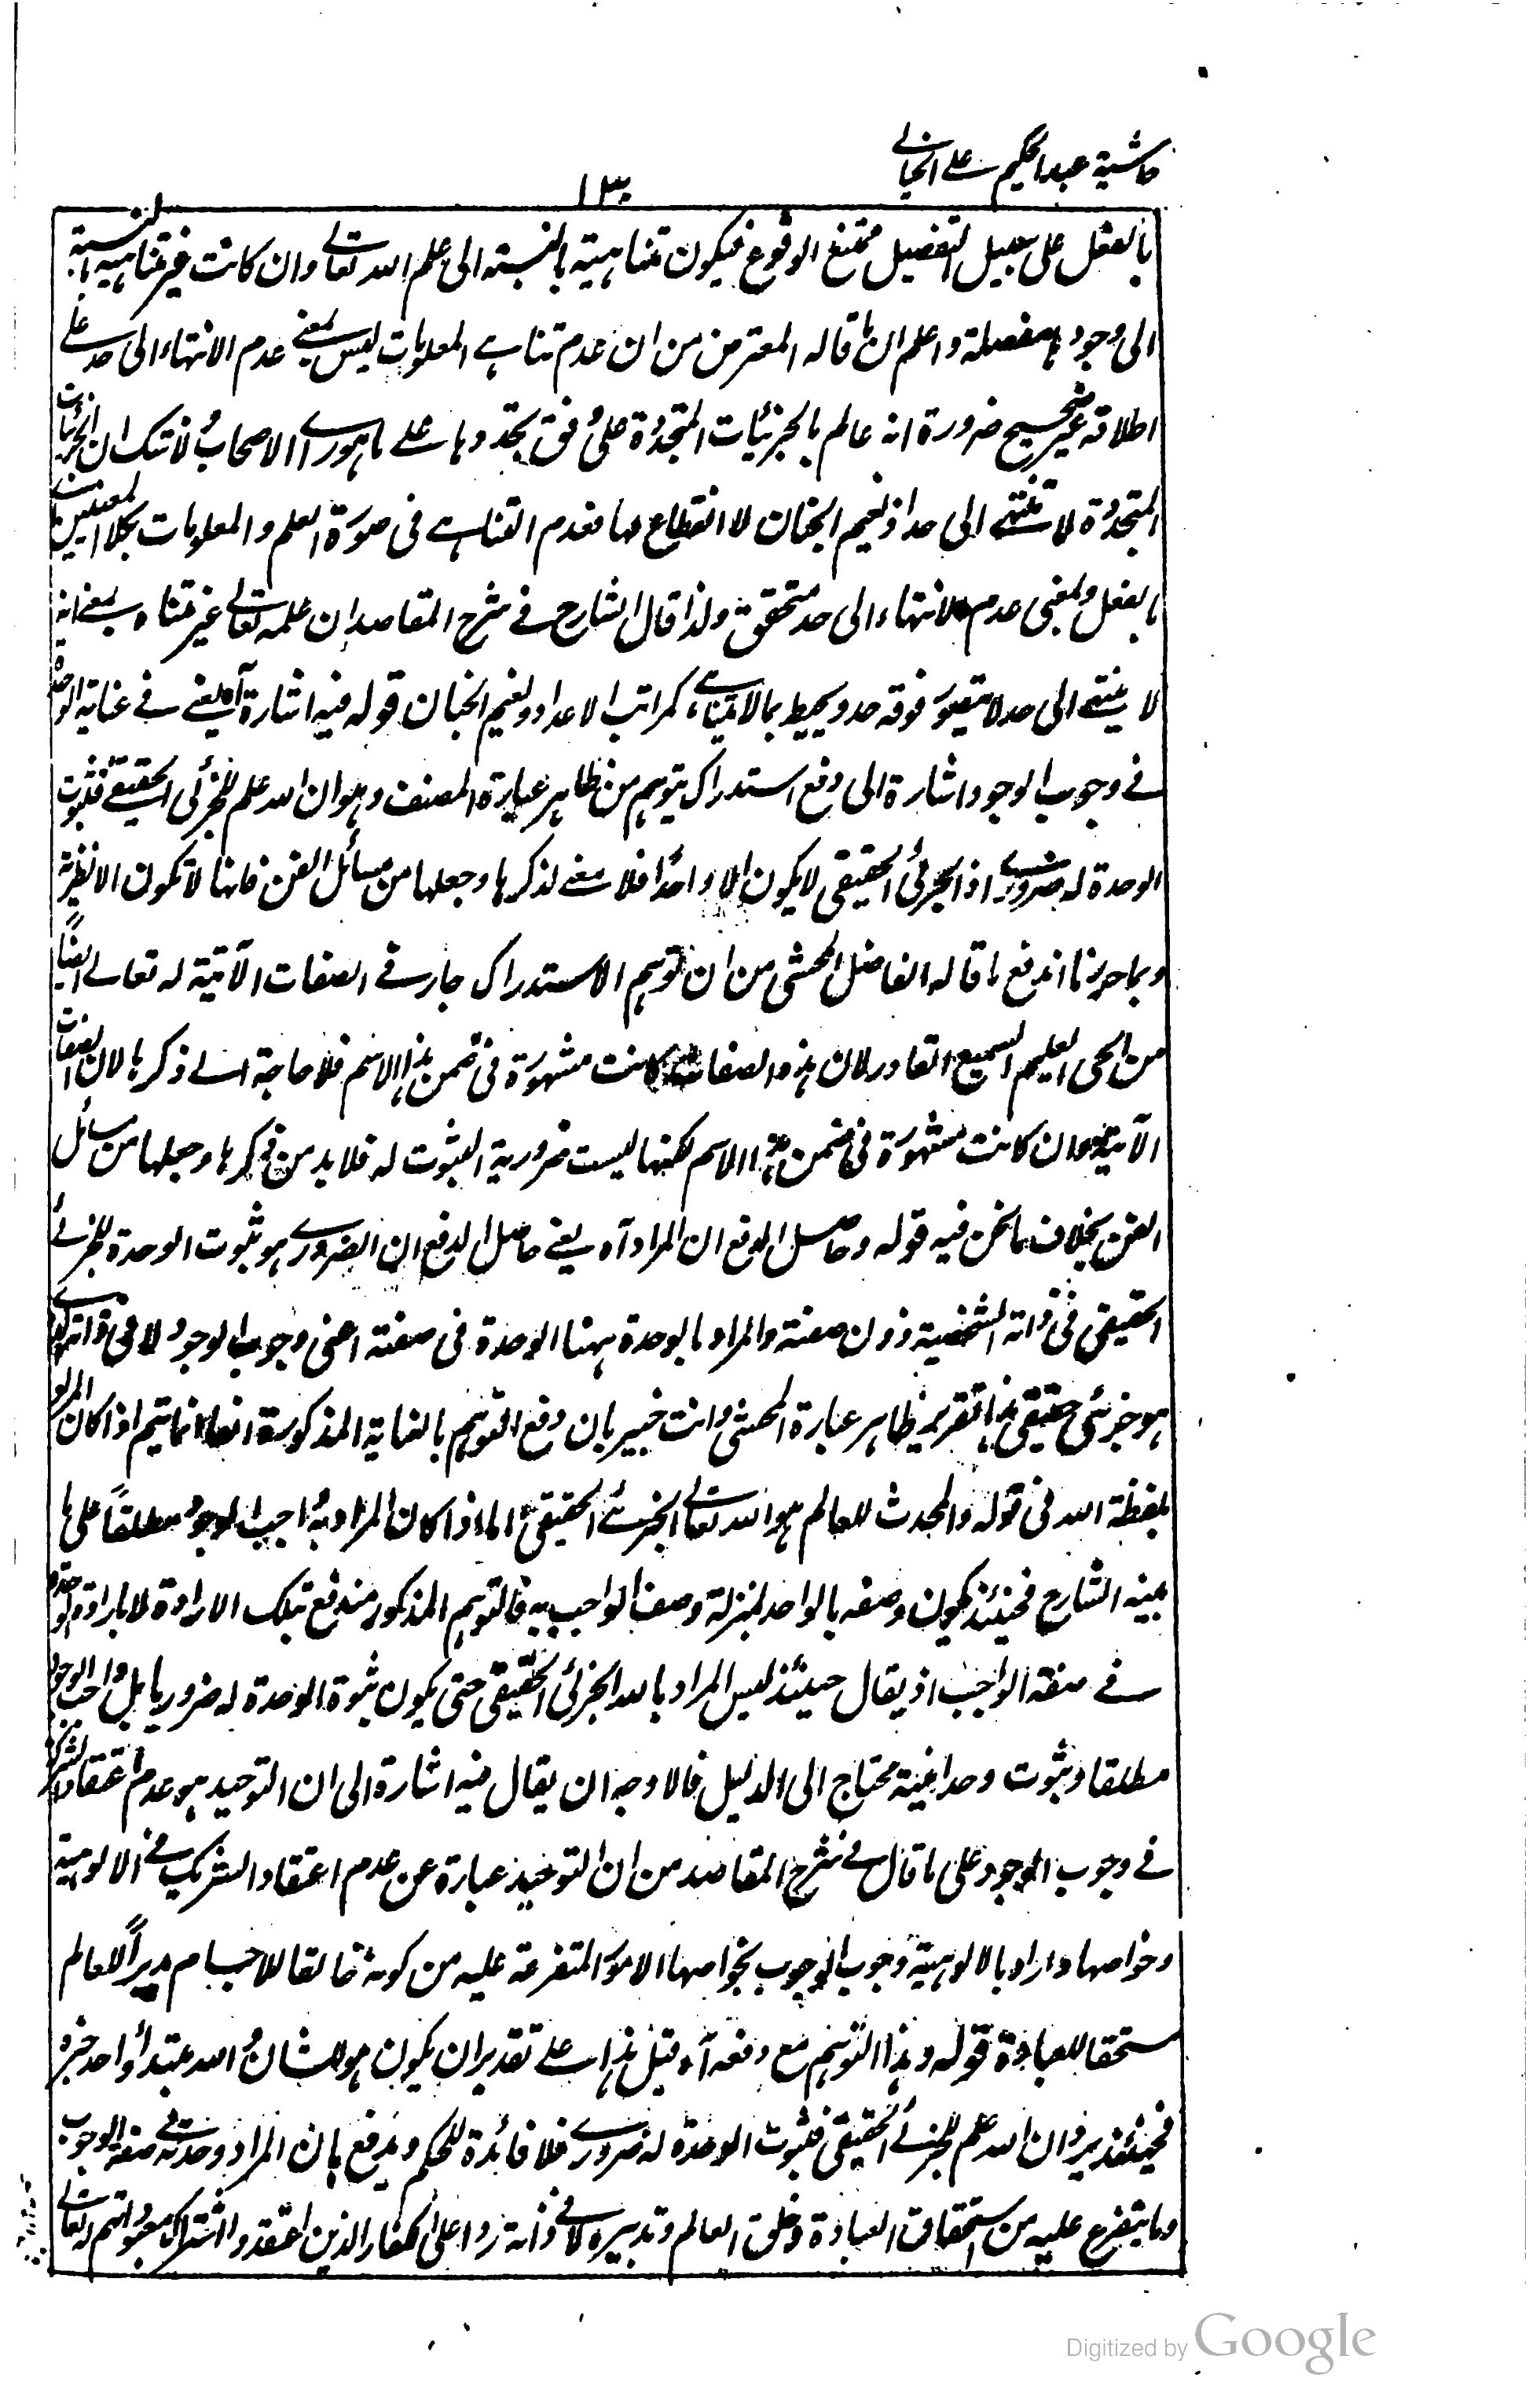 حاشية عبد الحكيم على الخيالى
١٣٠
بالفعل على سبيل التفصيل ممتنع الوقوع فيكون متناهية بالنسبة الى علم الله تعالى وان كانت غير متناهية بالنسبة
الى وجودها مفصلة واعلم ان ما قاله المعترض من ان عدم تناهى المعلومات ليس بمعنى عدم الانتهاء الى حد على
اطلاقه غير صحيح ضرورة انه عالم بالجزئيات المتجددة على وفق تجددها على ما هو رأى الاصحاب ولا شك ان الجزئيات
المتجددة لا تنتهى الى حد اذ نعيم الجنان لا انقطاع لها فعدم التناهى فى صورة العلم والمعلومات بكلا المعنيين
بالفعل وبمعنى عدم الانتهاء الى حد متحقق ولذا قال الشارح فى شرح المقاصد ان علمه تعالى غير متناه بمعنى انه
لا ينتهى الى حد لا يتصور فوقه حد ويحيط بما لا يتناهى كمراتب الاعداد ونعيم الجنان قوله فيه اشارة آه يعنى فى عناية الوحدة
فى وجوب الوجود اشارة الى دفع استدراك يتوهم من ظاهر عبارة المصنف وهو ان الله علم للجزئى الحقيقى فثبوت
الوحدة له ضرورى اذ الجزئى الحقيقى لا يكون الا واحدا فلا معنى لذكرها وجعلها من مسائل الفن فانها لا تكون الا نظرية
وبما حررنا اندفع ما قاله الفاضل المحشى من ان توهم الاستدراك جار فى الصفات الآتية له تعالى ايضًا
من الحى العليم السميع القادر لان هذه الصفات كانت مشهورة فى ضمن هذا الاسم فلا حاجة الى ذكرها لان الصفات
الآتية وان كانت مشهورة فى ضمن هذا الاسم لكنها ليست ضرورية الثبوت له فلا بد من ذكرها وجعلها من مسائل
الفن بخلاف ما نحن فيه قوله وحاصل الدفع ان المراد آه يعنى حاصل الدفع ان الضرورى هو ثبوت الوحدة للجزئى
الحقيقى فى ذاته الشخصية دون صفته والمراد بالوحدة ههنا الوحدة فى صفته اعنى وجوب الوجود لا فى ذاته الذى
هو جزئى حقيقى هذا تقرير ظاهر عبارة المحشى وانت خبير بان دفع التوهم بالعناية المذكورة انما يتم اذا كان المراد
بلفظة الله فى قوله والمحدث للعالم هو الله تعالى الجزئى الحقيقى اما اذا كان المراد به واجب الوجود مطلقًا على ما
بينه الشارح فحينئذ يكون وصفه بالواحد بمنزلة وصف الواجب به فالتوهم المذكور مندفع بتلك الارادة لا بارادة الوحدة
فى صفة الواجب اذ يقال حينئذ ليس المراد بالله الجزئى الحقيقى حتى يكون ثبوت الوحدة له ضروريا بل واجب الوجود
مطلقا وثبوت وحدانيته محتاج الى الدليل فالاوجه ان يقال فيه اشارة الى ان التوحيد هو عدم اعتقاد الشركة
فى وجوب الوجود على ما قال فى شرح المقاصد من ان التوحيد عبارة عن عدم اعتقاد الشريك فى الالوهية
وخواصها واراد بالالوهية وجوب الوجوب بخواصها الامور المتفرعة عليه من كونه خالقا للاجسام مدبرًا للعالم
مستحقا للعبادة قوله وهذا التوهم مع دفعه آه قيل هذا على تقدير ان يكون هو للشان والله مبتدأ واحد خبره
فحينئذ يرد ان الله علم للجزئى الحقيقى فثبوت الوحدة له ضرورى فلا فائدة للحكم ويدفع بان المراد وحدته فى صفة الوجوب
وما يتفرع عليه من استحقاق العبادة وخلق العالم وتدبيره لا فى ذاته ردا على الكفار الذين اعتقدوا اشتراك معبوداتهم له تعالى
Digitized by Google